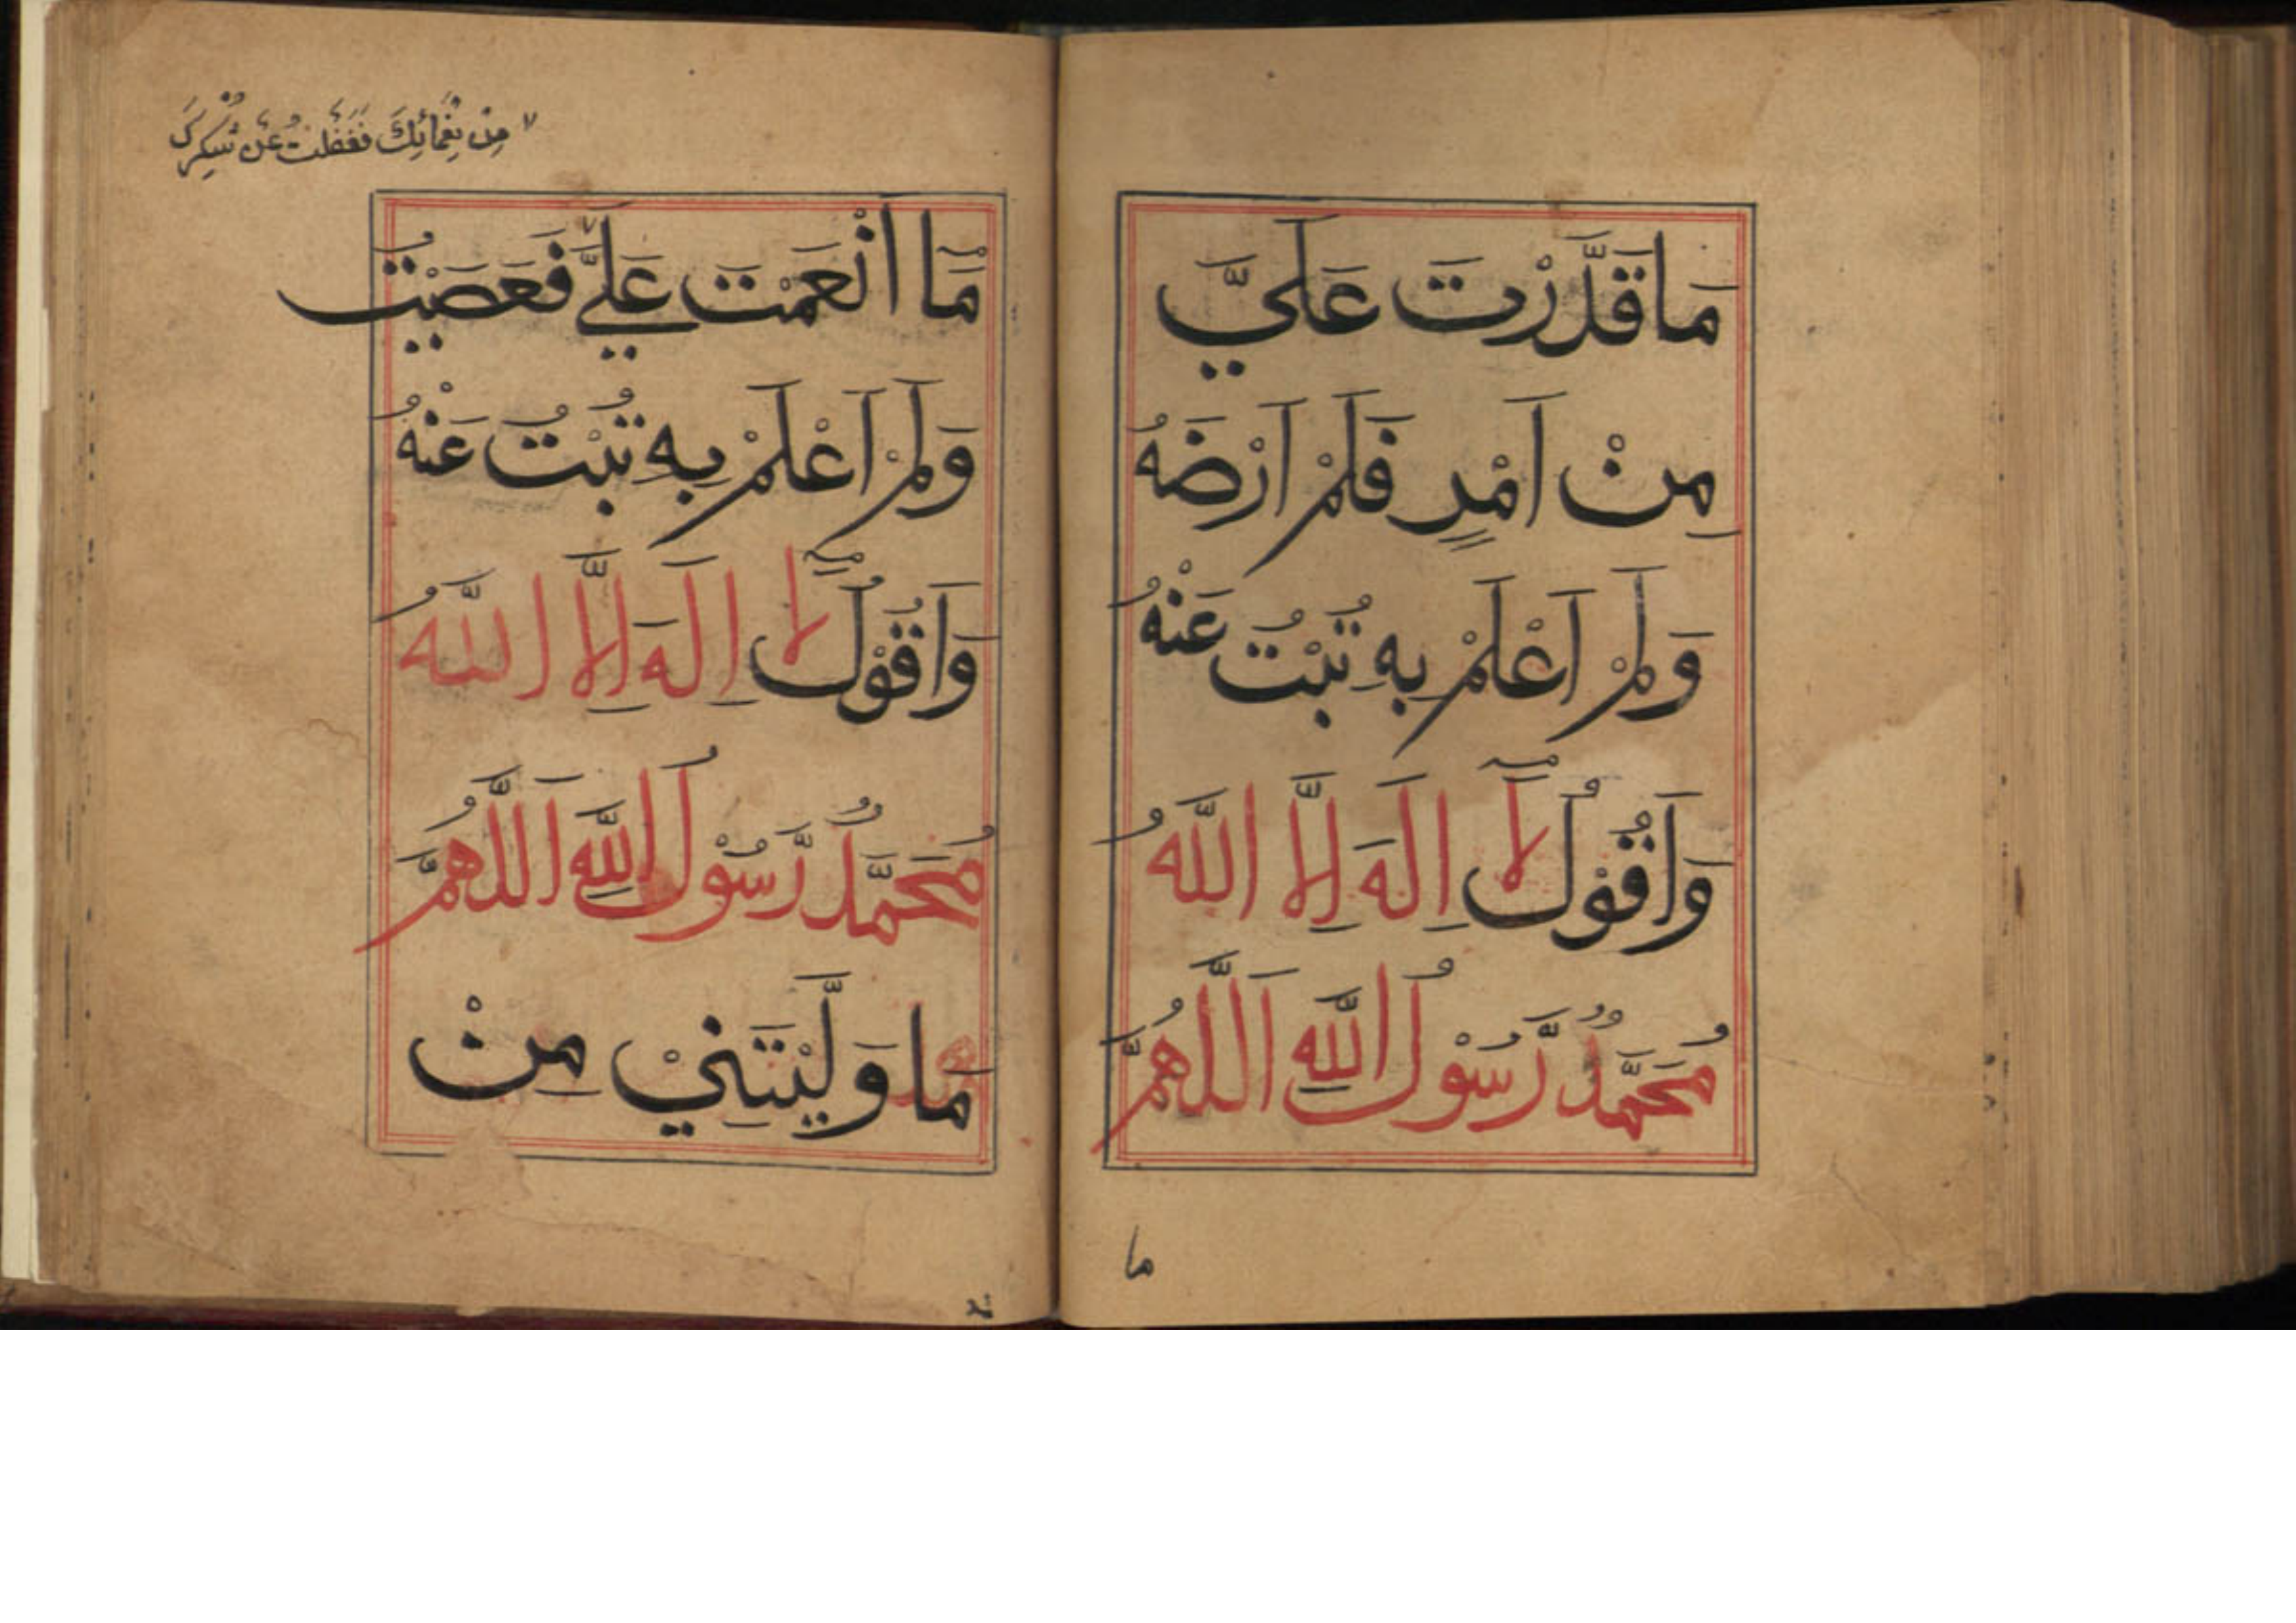 مَا قَدَّرْتَ عَلَيَّ
مِنْ اَمْرٍ فَلَمْ اَرْضَهُ
وَلَمْ اَعْلَمْ بِهِ تُبْتُ عَنْهُ
وَاَقُوْلُ لَآ اِلَهَ اِلَّا اللَّهُ
مُحَمَّدٌ رَّسُوْلُ اللَّهِ اَللَّهُمَّ
ما
مِنْ نِعْمَائِكَ فَغَفَلْتُ عَنْ شُكْرِكَ
مَا اَنْعَمْتَ عَلَيَّ فَعَصَيْتُ
وَلَمْ اَعْلَمْ بِهِ تُبْتُ عَنْهُ
وَاَقُوْلُ لَآ اِلَهَ اِلَّا اللَّهُ
مُحَمَّدٌ رَّسُوْلُ اللَّهِ اَللَّهُمَّ
مَا وَلَّيْتَنِيْ مِنْ